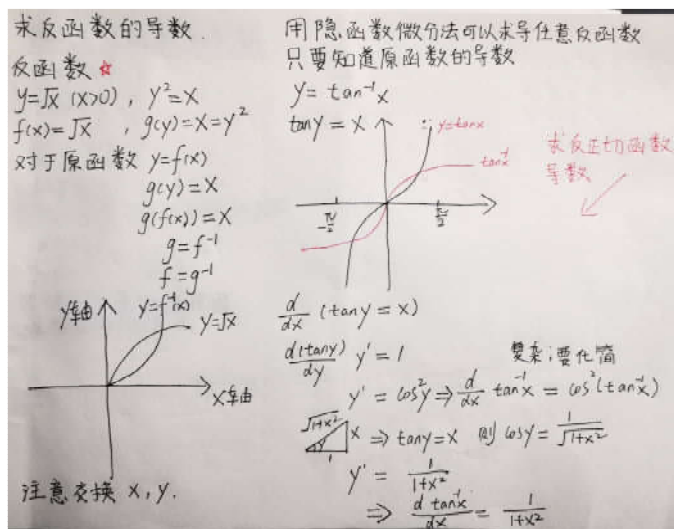 求反函数的导数.
反函数☆
y=√x (x>0), y²=x
f(x)=√x , g(y)=x=y²
对于原函数 y=f(x)
g(y)=x
g(f(x))=x
g=f⁻¹
f=g⁻¹
y轴
y=f⁻¹(x)
y=√x
x轴
注意交换 x, y.
用隐函数微分法可以求导任意反函数
只要知道原函数的导数
y=tan⁻¹x
tany=x
y=tanx
tan⁻¹x
-π/2
π/2
求反正切函数
导数
d/dx (tany=x)
d(tany)/dy y'=1
复杂;要化简
y'=cos²y⇒d/dx tan⁻¹x=cos²(tan⁻¹x)
√1+x²
y
x
1
⇒tany=x 则cosy=1/√1+x²
y'=1/1+x²
⇒ d tan⁻¹x/dx=1/1+x²